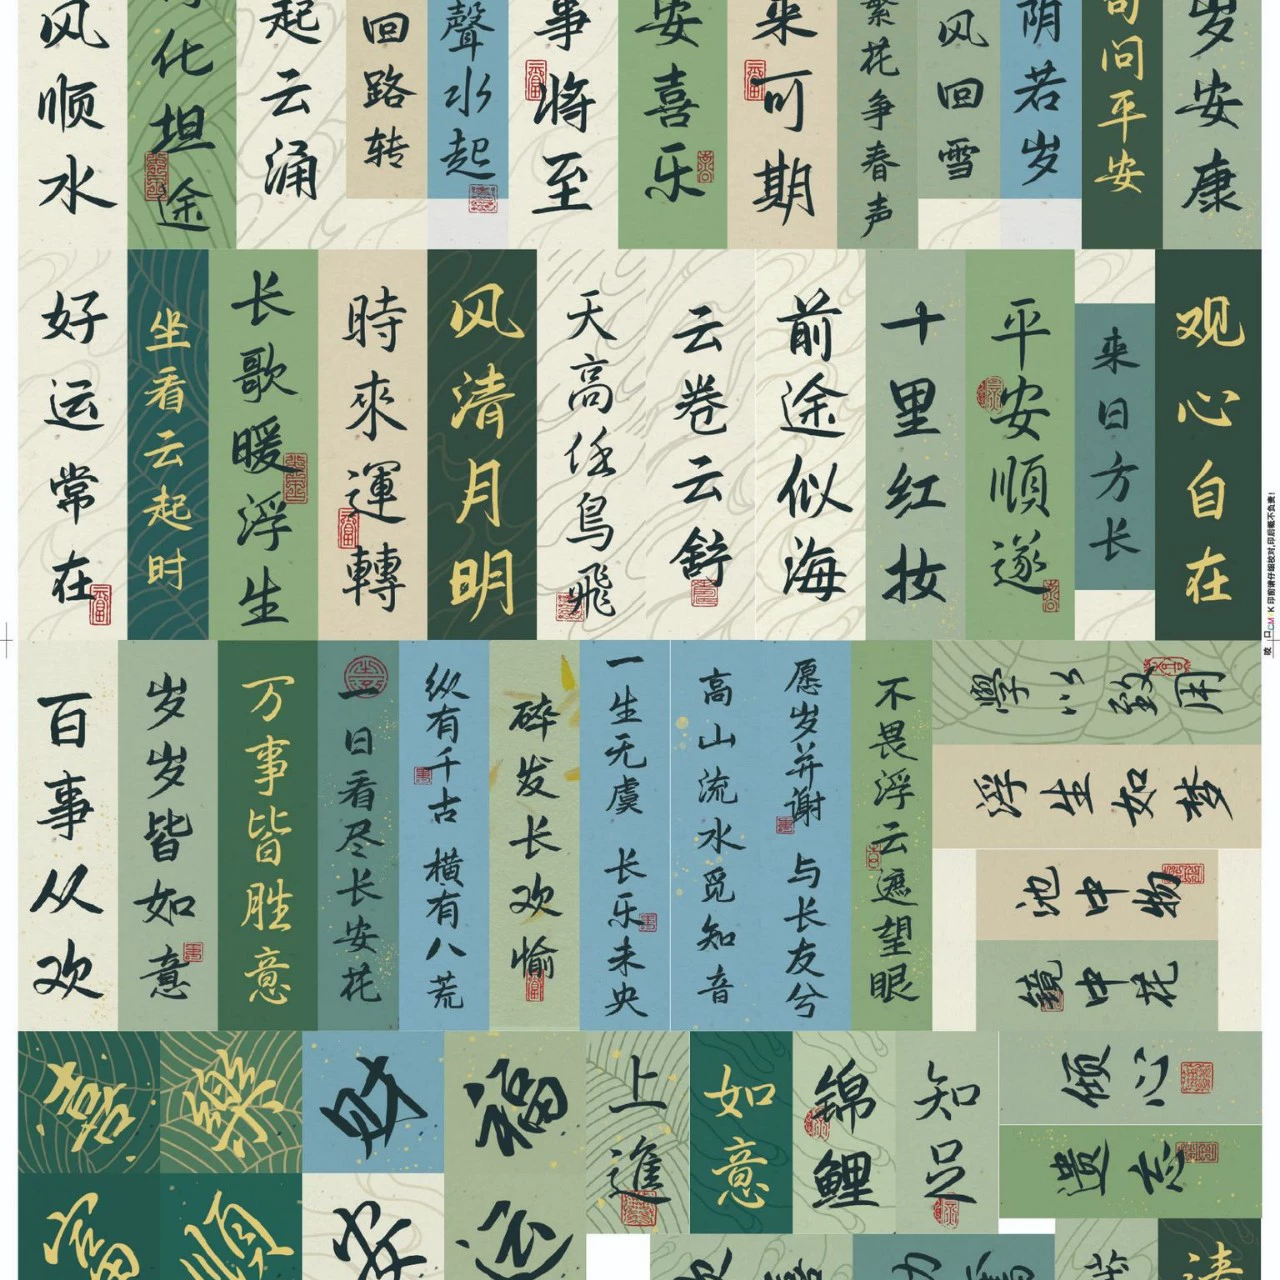 风顺水
化坦途
起云涌
回路转
聲水起
事将至
安喜乐
来可期
繁花争春声
风回雪
阴若岁
问平安
岁安康
好运常在
坐看云起时
长歌暖浮生
時來運轉
风清月明
天高任鸟飛
云卷云舒
前途似海
十里红妆
平安順遂
来日方长
观心自在
百事从欢
岁岁皆如意
万事皆胜意
一日看尽长安花
纵有千古 横有八荒
碎发长欢愉
一生无虞 长乐未央
高山流水觅知音
愿岁并谢 与长友兮
不畏浮云遮望眼
學以致用
浮生如梦
池中物
镜中花
喜
樂
财
福
上進
如意
锦鲤
知足
倾心
遗忘
富
順
安
运
清
印前请仔细校对,印后概不负责!